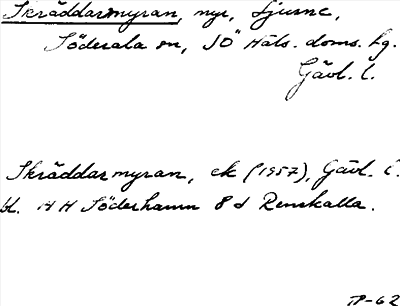 Skräddarmyran, nyr, Ljusne,
Söderala sn, SÖ Häls. doms. hg.
Gävl. l.
Skräddarmyran, ek (1957), Gävl. l.
bl. 14 H Söderhamn 8 d Renskalla.
TP-62